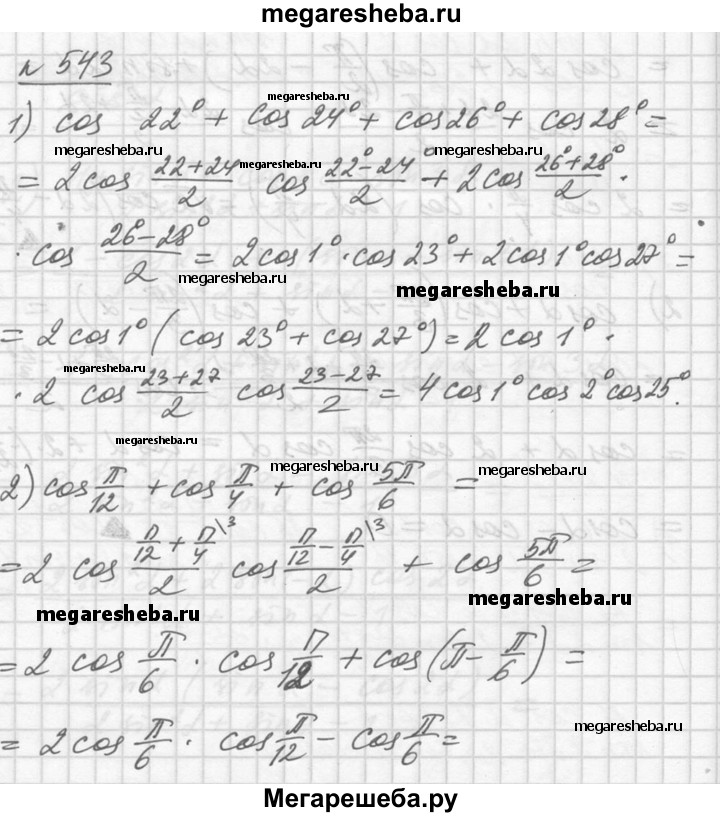 megaresheba.ru
№ 543
megaresheba.ru
1) cos 22° + cos 24° + cos 26° + cos 28° =
megaresheba.ru megaresheba.ru megaresheba.ru
= 2 cos (22+24)/2 cos (22°-24)/2 + 2 cos (26°+28°)/2 ·
· cos (26°-28°)/2 = 2 cos 1° · cos 23° + 2 cos 1° cos 27° =
megaresheba.ru megaresheba.ru
= 2 cos 1° ( cos 23° + cos 27° ) = 2 cos 1° ·
megaresheba.ru megaresheba.ru
· 2 cos (23+27)/2 cos (23-27)/2 = 4 cos 1° cos 2° cos 25°.
megaresheba.ru
megaresheba.ru megaresheba.ru
2) cos π/12 + cos π/4 + cos 5π/6 =
= 2 cos (π/12 + π/4 \3)/2 cos (π/12 - π/4 \3)/2 + cos 5π/6 =
megaresheba.ru megaresheba.ru
= 2 cos π/6 · cos π/12 + cos (π - π/6) =
megaresheba.ru
= 2 cos π/6 · cos π/12 - cos π/6 =
Мегарешеба.ру